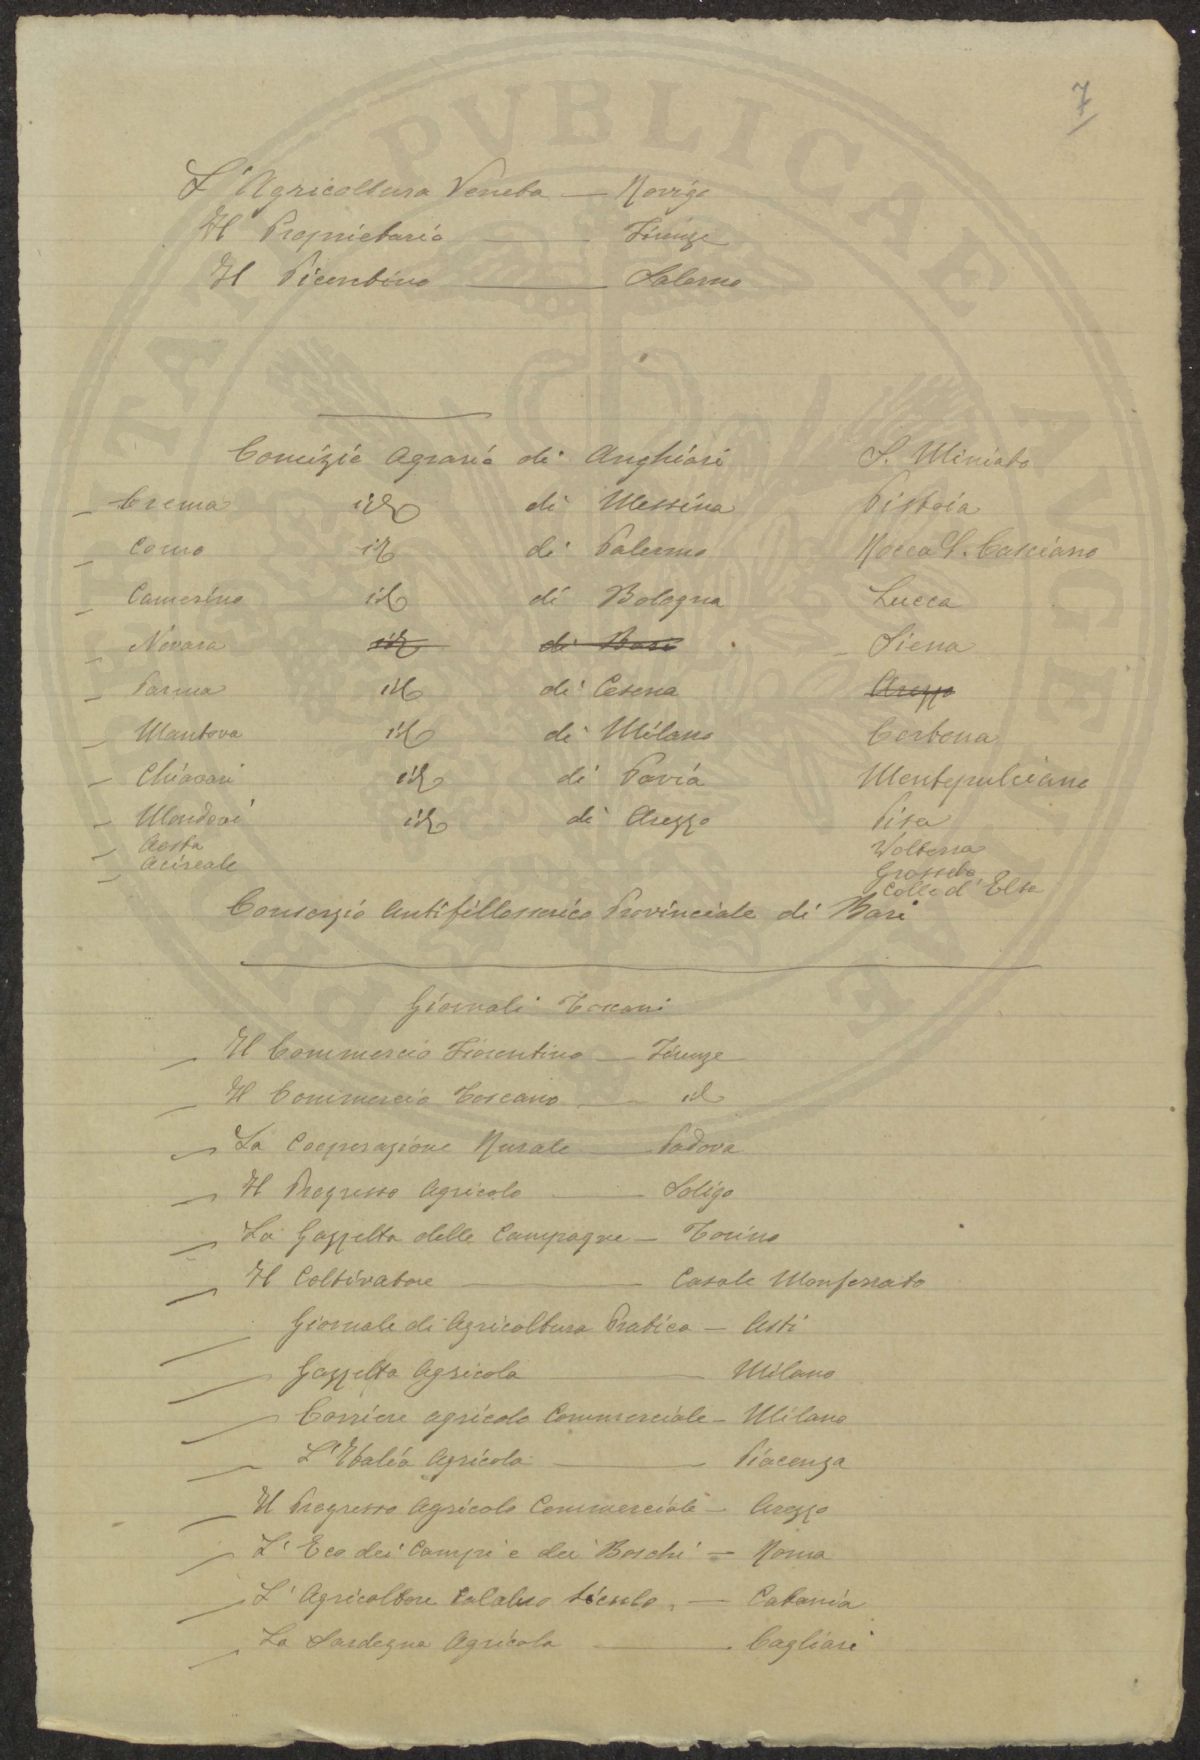 7
L'Agricoltura Veneta — Rovigo
Il Proprietario — Firenze
Il Picentino — Salerno
Comizio Agrario di Anghiari S. Miniato
– Crema id di Messina Pistoia
– Como id di Palermo Rocca S. Casciano
– Camerino id di Bologna Lucca
– Novara id di Bari – Siena
– Parma id di Cesena Arezzo
– Mantova id di Milano Cortona
– Chiavari id di Pavia Montepulciano
– Mondovi id di Arezzo Pisa
– Aosta Volterra
– Acireale Grosseto
Colle d'Elsa
Consorzio Antifillosserico Provinciale di Bari
Giornali Toscani
– Il Commercio Fiorentino — Firenze
– Il Commercio Toscano — id
– La Cooperazione Rurale — Padova
– Il Progresso Agricolo — Soligo
– La Gazzetta delle Campagne — Torino
– Il Coltivatore — Casale Monferrato
– Giornale di Agricoltura Pratica — Asti
– Gazzetta Agricola — Milano
– Corriere agricolo Commerciale — Milano
– L'Italia Agricola — Piacenza
– Il Progresso Agricolo Commerciale — Arezzo
– L'Eco dei Campi e dei Boschi — Roma
– L'Agricoltore Calabro Siculo — Catania
– La Sardegna Agricola — Cagliari